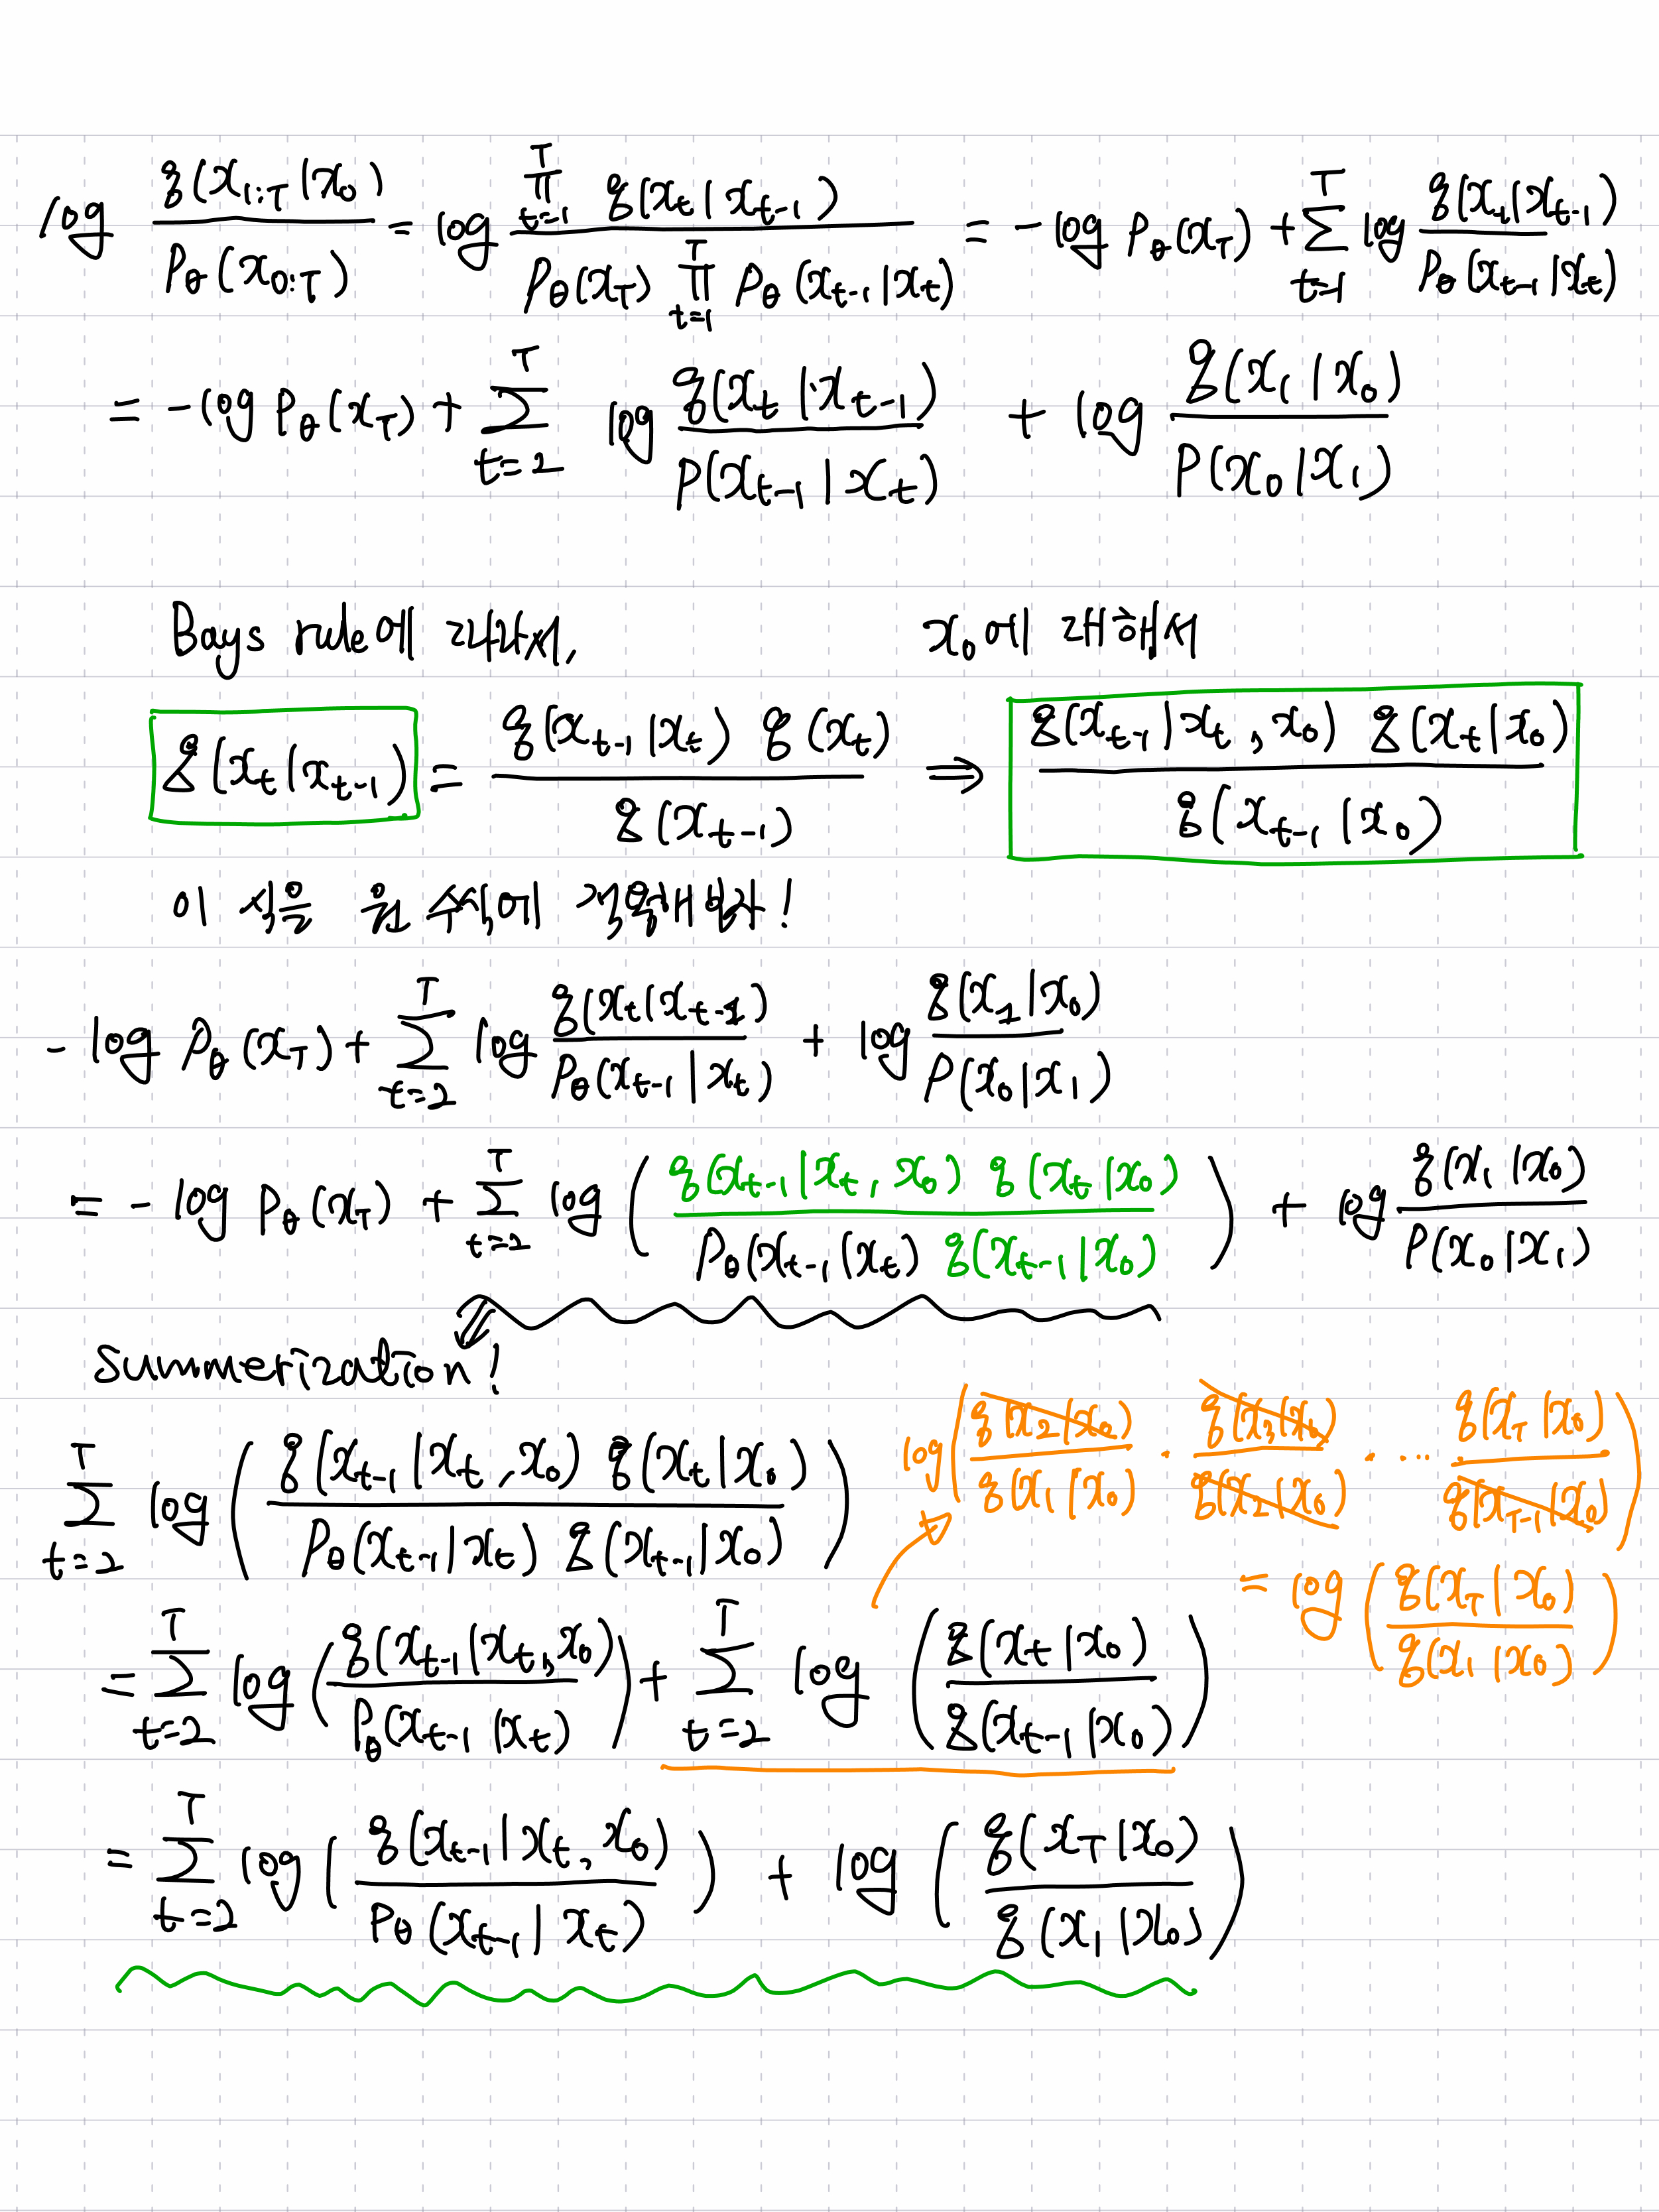 log q(x₁:T|x₀) / Pθ(x₀:T) = log ∏_{t=1}^{T} q(xt|xt-1) / Pθ(xT) ∏_{t=1}^{T} Pθ(xt-1|xt) = - log Pθ(xT) + Σ_{t=1}^{T} log q(xt|xt-1) / Pθ(xt-1|xt)
= - log Pθ(xT) + Σ_{t=2}^{T} log q(xt|xt-1) / P(xt-1|xt) + log q(x₁|x₀) / P(x₀|x₁)
Bays rule에 따라서, x₀에 대해서
q(xt|xt-1) = q(xt-1|xt) q(xt) / q(xt-1) ⇒ q(xt-1|xt, x₀) q(xt|x₀) / q(xt-1|x₀)
이 식을 원 수식에 적용해보자!
- log Pθ(xT) + Σ_{t=2}^{T} log q(xt|xt-1) / Pθ(xt-1|xt) + log q(x₁|x₀) / P(x₀|x₁)
= - log Pθ(xT) + Σ_{t=2}^{T} log ( q(xt-1|xt, x₀) q(xt|x₀) / Pθ(xt-1|xt) q(xt-1|x₀) ) + log q(x₁|x₀) / P(x₀|x₁)
Summerization!
Σ_{t=2}^{T} log ( q(xt-1|xt, x₀) q(xt|x₀) / Pθ(xt-1|xt) q(xt-1|x₀) )
log ( q(x₂|x₀) / q(x₁|x₀) · q(x₃|x₀) / q(x₂|x₀) · ... q(xT|x₀) / q(xT-1|x₀) )
= log ( q(xT|x₀) / q(x₁|x₀) )
= Σ_{t=2}^{T} log ( q(xt-1|xt, x₀) / Pθ(xt-1|xt) ) + Σ_{t=2}^{T} log ( q(xt|x₀) / q(xt-1|x₀) )
= Σ_{t=2}^{T} log ( q(xt-1|xt, x₀) / Pθ(xt-1|xt) ) + log ( q(xT|x₀) / q(x₁|x₀) )